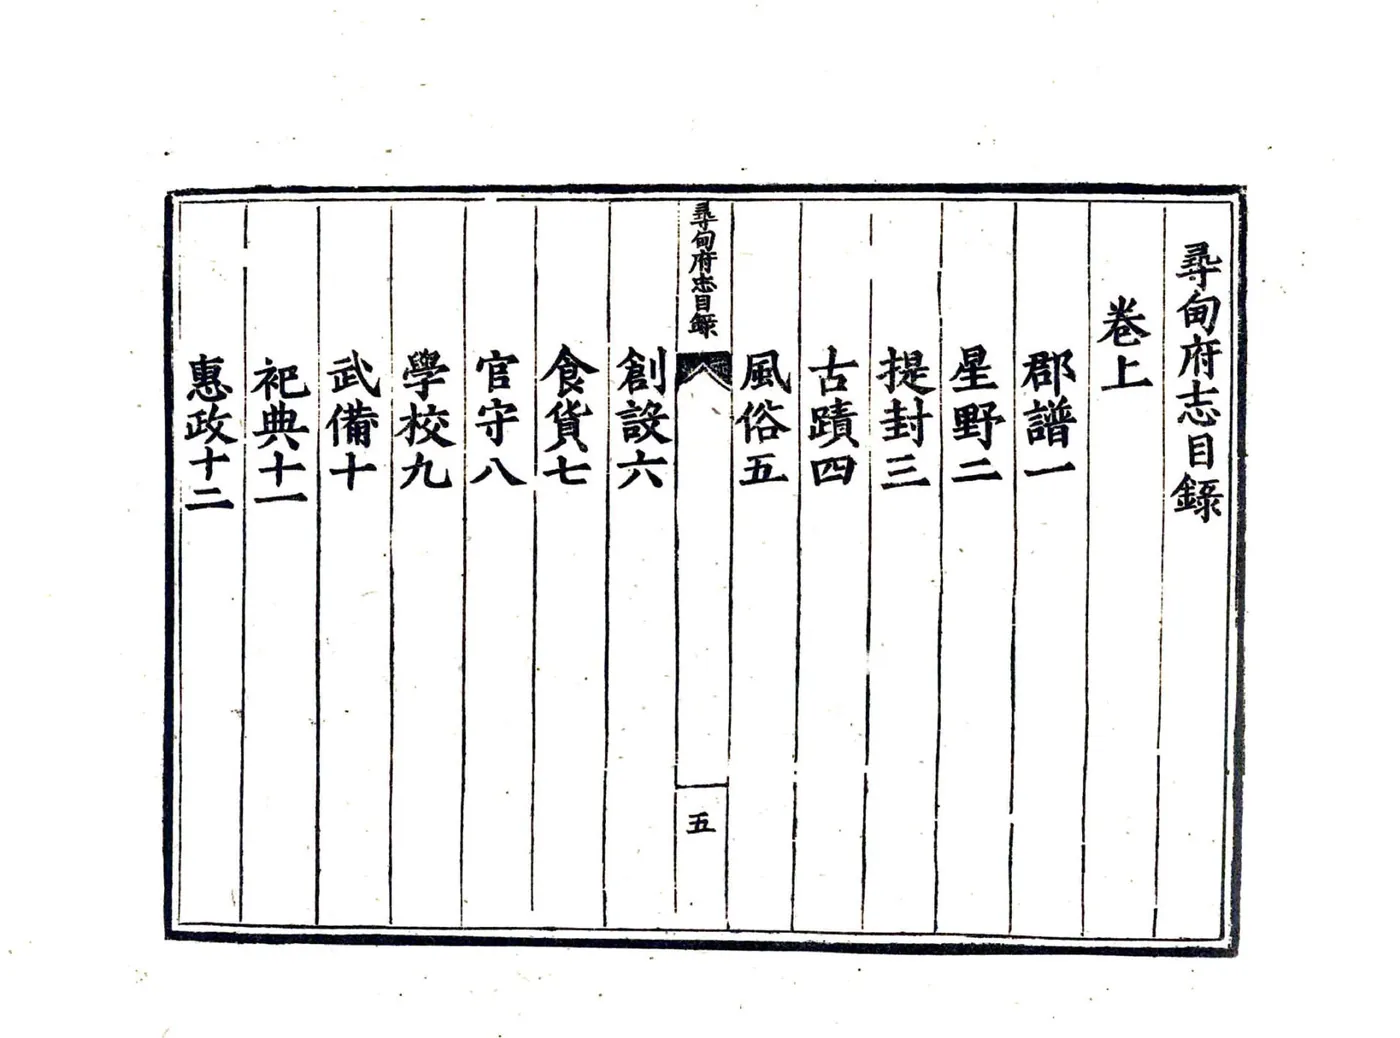 尋甸府志目錄
卷上
郡譜一
星野二
提封三
古蹟四
風俗五
尋甸府志目錄
五
創設六
食貨七
官守八
學校九
武備十
祀典十一
惠政十二